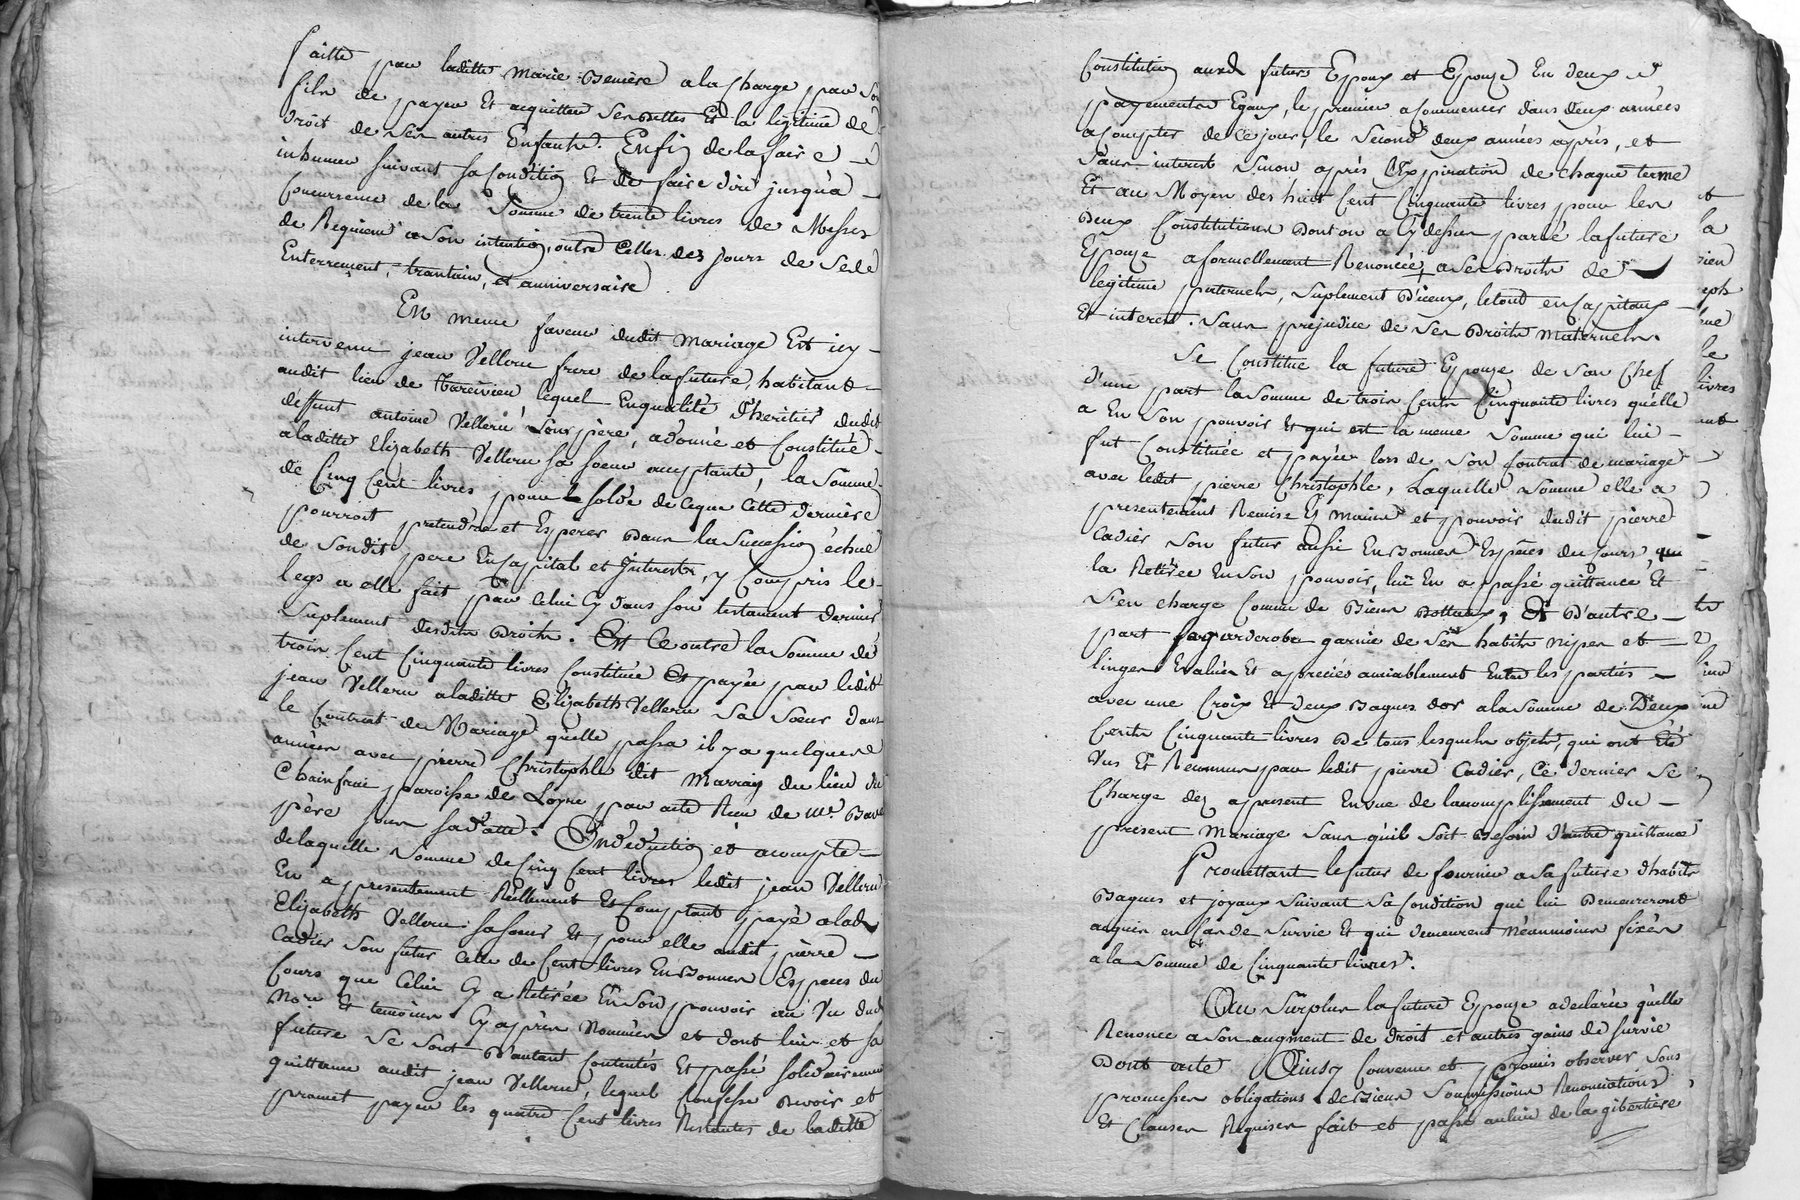 faitte par laditte marie Beniere a la charge par son
fils de payer et acquitter ses dettes et la légitime de
droit de ses autres Enfants. Enfin de la faire
inhumer suivant sa condition et de faire dire jusqu'a
concurrence de la Somme de trente livres de Messes
de Requiem a son intention, outre celles des jours de Sede
Enterrement, trantain, et anniversaire
En meme faveur dudit mariage Est icy
intervenu jean Velleru frere de la future, habitant
audit lieu de lequel En qualité d'heritier dudit
deffunt antoine Velleru Son père, a donné et Constitué
a laditte Elizabeth Velleru sa soeur acceptante, la Somme
de Cinq Cent livres pour le solde de ce que Cette derniere
pourroit pretendre et Esperer dans la Succession échue
de Sondit pere En Capital et Interests, y Compris le
legs a elle fait par Celui Cy dans son testament dernier
Suplement desdits Droits. Est Ce outre la Somme de
trois Cent Cinquante livres Constituée Et payée par ledit
jean Velleru a laditte Elizabeth Velleru Sa Soeur dans
le Contrat de Mariage qu'elle passa il y a quelques
années avec pierre Christophle dit Marrain du lieu du
paroisse de par acte Recu de Me.
père sous sa datte. En déduction et acompte
de laquelle Somme de Cinq Cent livres ledit jean Velleru
En a presentement Réellement Et Comptant payé a lad.
Elizabeth Velleru sa soeur Et pour elle audit pierre
Cadier Son futur Celle de Cent livres En Bonnes Especes du
Cours que Celui Cy a Retirée En Son pouvoir au Vu dud.
No.re Et temoins Cy après Nommés et dont lui et sa
future se sont d'autant Contentés Et passé solidairement
quittance audit jean Velleru, lequel Confesse devoir et
promet payer les quatre Cent livres Restantes de laditte
Constitution auxd. futurs Epoux et Epouze En deux
payements Egaux, le premier a Commencer dans deux années
a compter de Ce jour, le Second deux années après, et
Sans interest Sinon après l'Expiration de chaque terme
Et au Moyen des huit Cent Cinquante livres pour les
deux Constitutions Dont on a Cy dessus parlé la future
Epouze a formellement Renoncé, a Ses Droits de
legitime paternels, Suplement D'iceux, le tout en Capitaux
Et interest. Sans prejudice de Ses Droits Maternels.
Se Constitue la future Epouze de Son Chef
d'une part la Somme de trois Cents Cinquante livres qu'elle
a En Son pouvoir Et qui est la meme Somme qui lui
fut Constituée et payée lors de Son Contrat de mariage
avec ledit pierre Christophle, Laquelle Somme elle a
presentement Remise Es mains et pouvoir dudit pierre
Cadier Son futur aussi En Bonnes Espèces du Cours qui
la Retirée En Son pouvoir, lui En a passé quittance, Et
S'en charge Comme de Biens Dottaux, Et D'autre
part Sa garderobe garnie de Ses habits nipes et
linges Evalués Et apreciés amiablement Entre les parties
avec une Croix Et deux Bagues d'or a la Somme de Deux
Cents Cinquante livres De tous lesquels objets, qui ont Eté
Vus Et Reconnus par ledit pierre Cadier, Ce dernier Se
Charge dez apresent En vue de laccomplissement du
present Mariage Sans qu'il Soit Besoin d'autre quittance
Promettant le futur de fournir a Sa future d'habits
Bagues et joyaux Suivant Sa Condition qui lui Demeureront
acquis en Cas de Survie Et qui demeurent Néanmoins fixés
a la Somme de Cinquante livres.
Au Surplus la future Epouze a declarée qu'elle
Renonce a Son augment de droit et autres gains de Survie
Dont acte Ainsy Convenu et promis observer Sous
promesses obligations de Biens Soumissions Renonciations
Et Clauses Requises fait et passé au lieu de la gibertiere